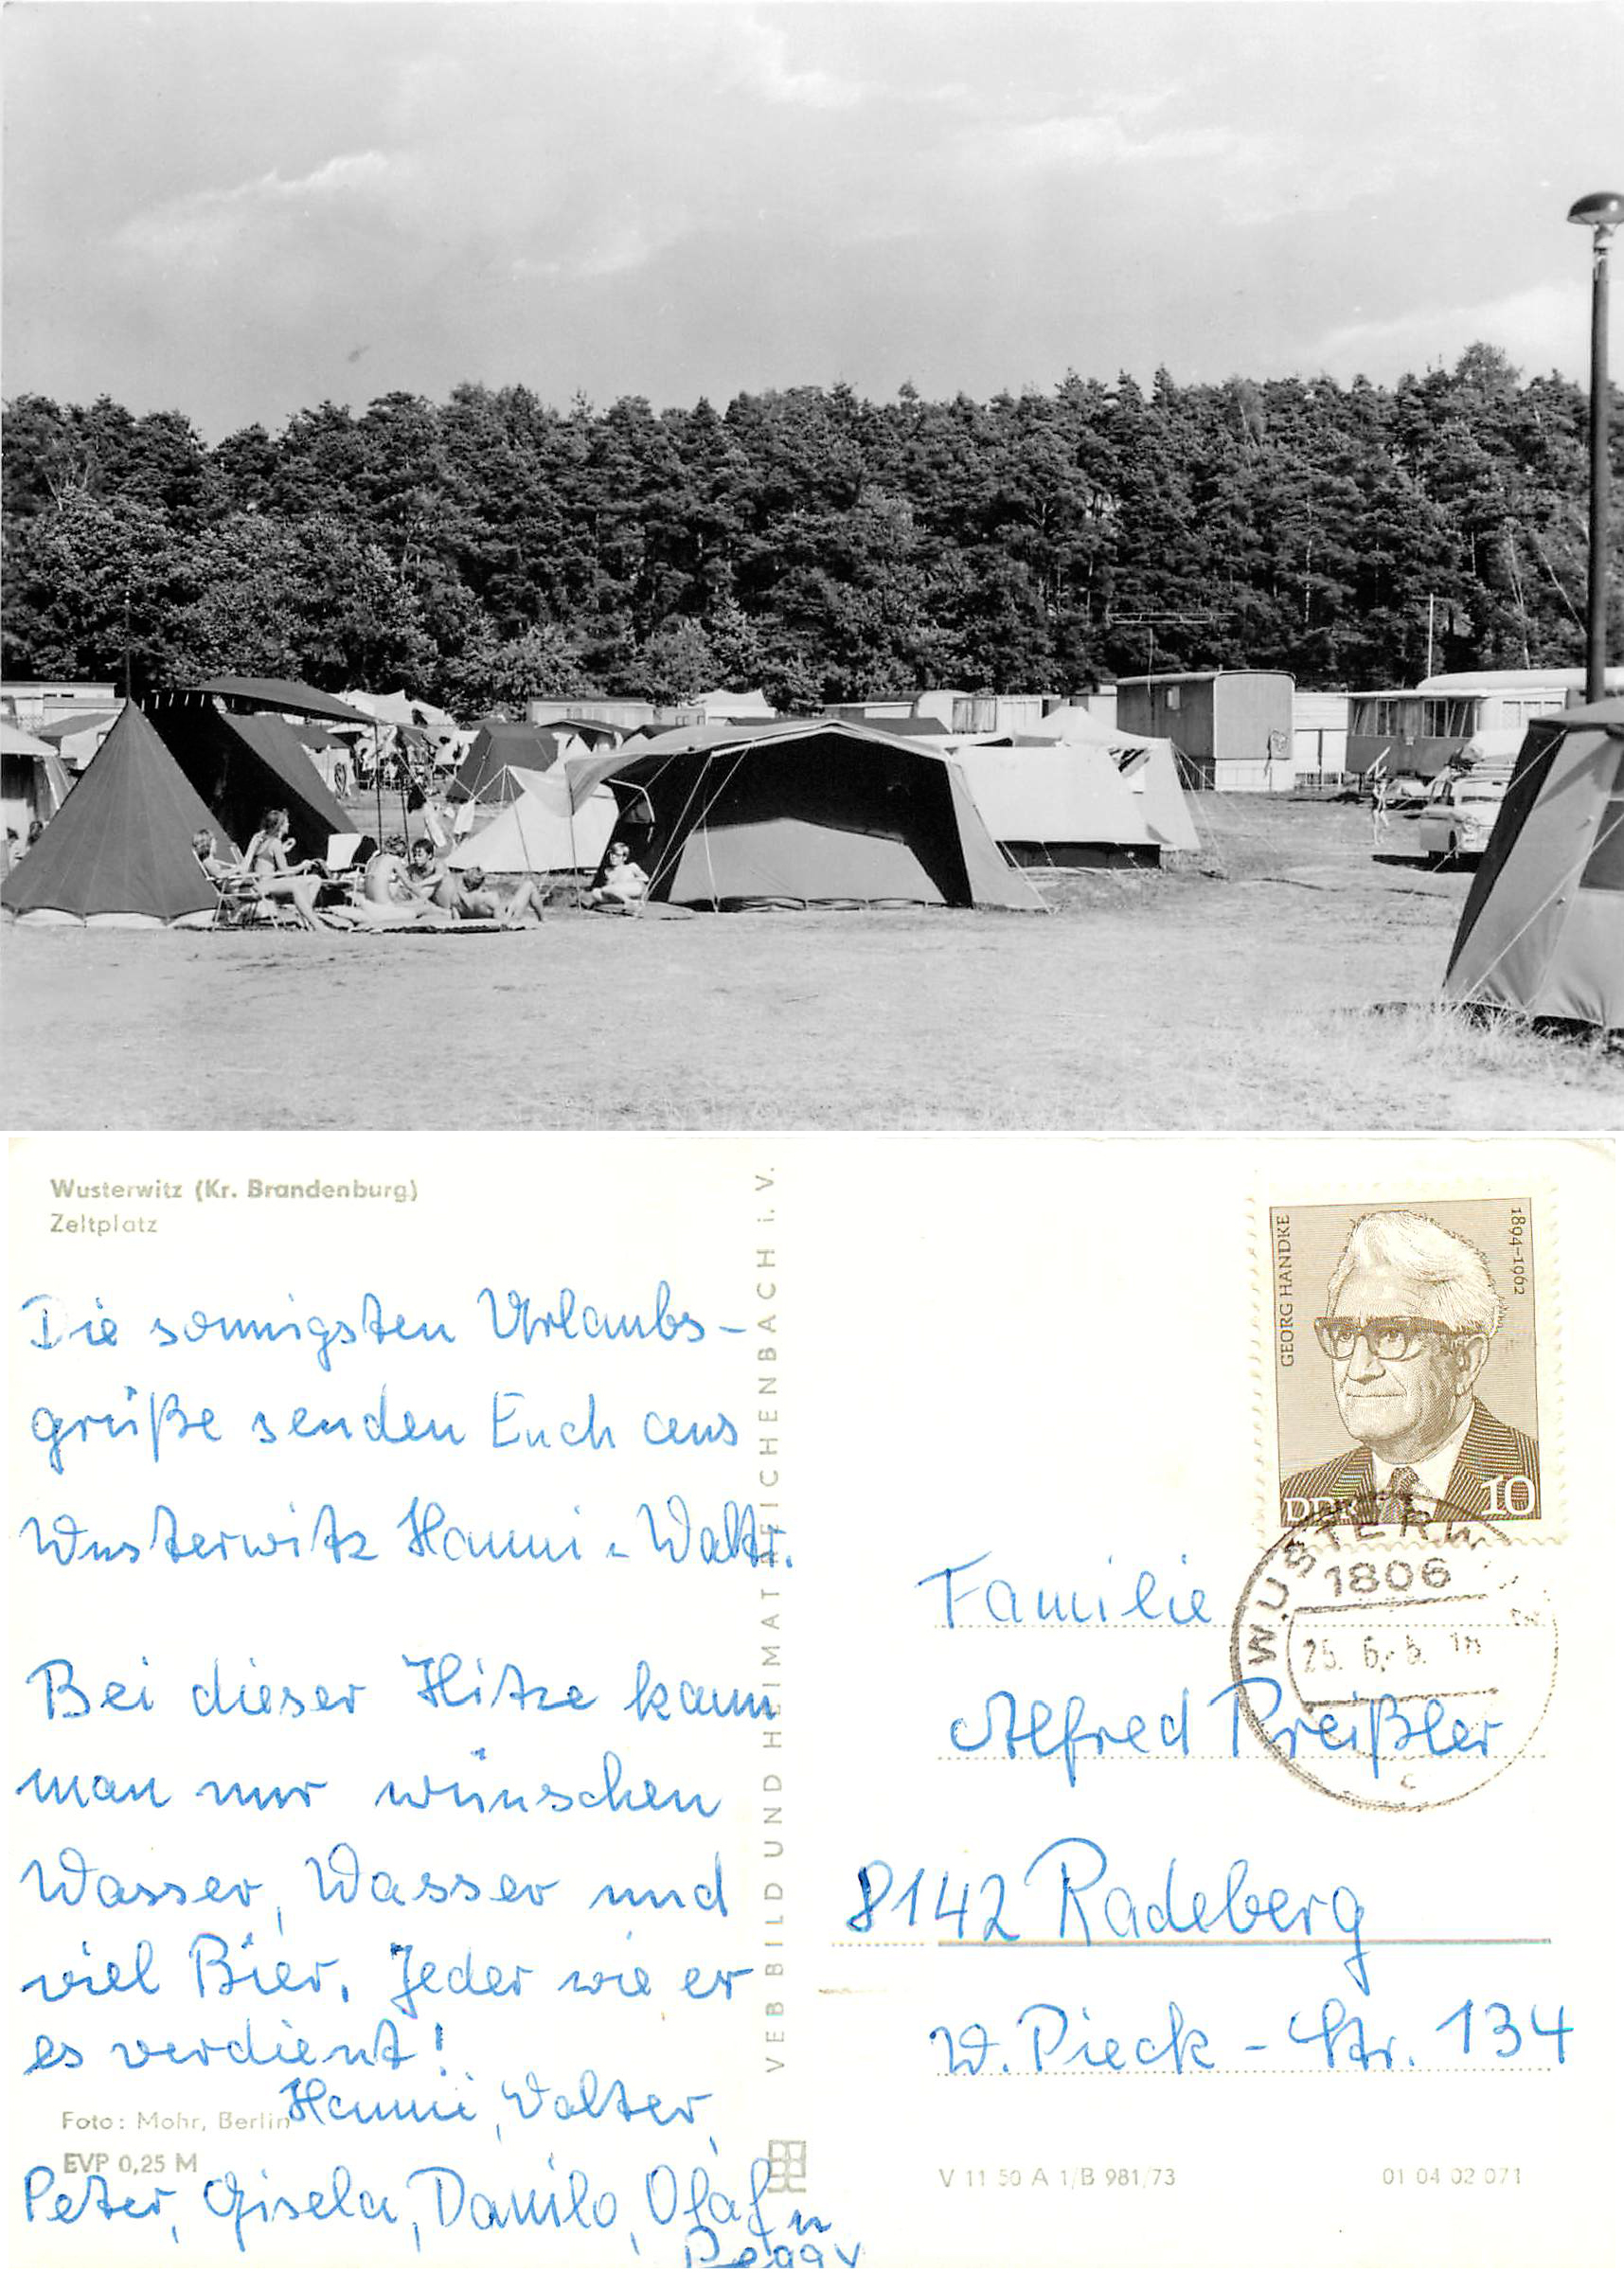 Wusterwitz (Kr. Brandenburg)
Zeltplatz
Die sonnigsten Urlaubs-
grüße senden Euch aus
Wusterwitz Hanni u. Waltr.
Bei dieser Hitze kann
man nur wünschen
Wasser, Wasser und
viel Bier. Jeder wie er
es verdient!
Hanni, Walter,
Peter, Gisela, Danilo, Olaf u
Peggy
Foto: Mohr, Berlin
EVP 0,25 M
VEB BILD UND HEIMAT REICHENBACH i. V.
GEORG HANDKE
1894-1962
DDR
10
1806
25. 6.
c
Familie
Alfred Preißler
8142 Radeberg
W. Pieck - Str. 134
V 11 50 A 1/B 981/73
01 04 02 071